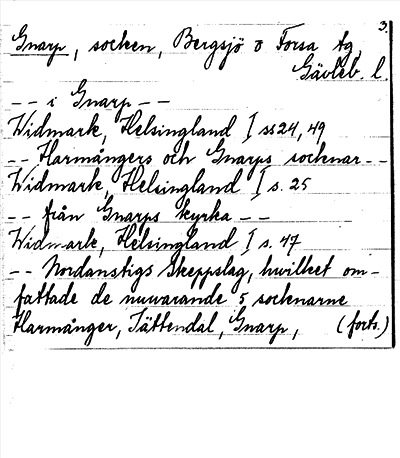 3.
Gnarp, socken, Bergsjö o Forsa tg,
Gävleb. l.
-- i Gnarp --
Widmark, Helsingland I ss 24, 49
-- Harmångers och Gnarps socknar --
Widmark, Helsingland I s. 25
-- från Gnarps kyrka --
Widmark, Helsingland I s. 47
-- Nordanstigs Skeppslag, hwilket om-
fattade de nuwarande 5 socknarne
Harmånger, Jättendal, Gnarp, (forts.)